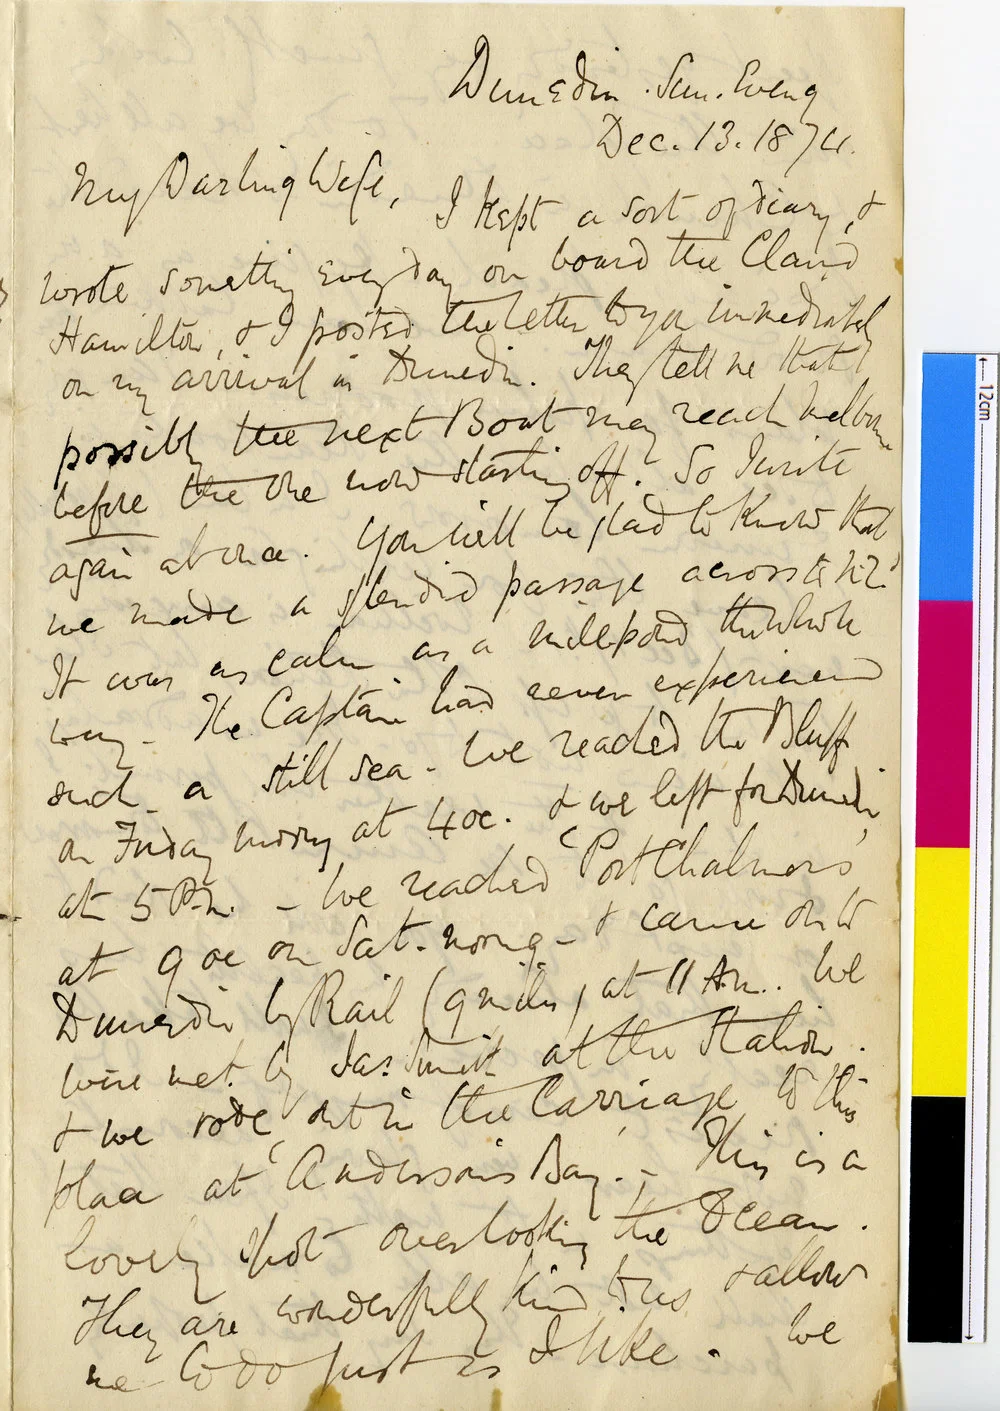 Dunedin. Sun. Eveng
Dec. 13. 1874.
My Darling Wife,
I kept a sort of diary, &
wrote something every day on board the Claud
Hamilton, & I posted the letter to you immediately
on my arrival in Dunedin. They tell me that
possibly the next Boat may reach Melbourne
before the one now starting off. So I write
again at once. You will be glad to know that
we made a splendid passage across to N.Z.
It was as calm as a millpond the whole
way - The Captain had never experienced
such a still sea - We reached the Bluff
on Friday morng at 4 oc. & we left for Dunedin
at 5 P.m. - We reached 'Port Chalmers'
at 9 oc on Sat. morng - & came on to
Dunedin by Rail (9 miles) at 11 A.m.. We
were met by Jas. Smith at the Station.
& we rode out in the Carriage to this
place at 'Andersons Bay'. - This is a
lovely spot overlooking the Ocean.
They are wonderfully kind to us & allow
me to do just as I like. We
12cm